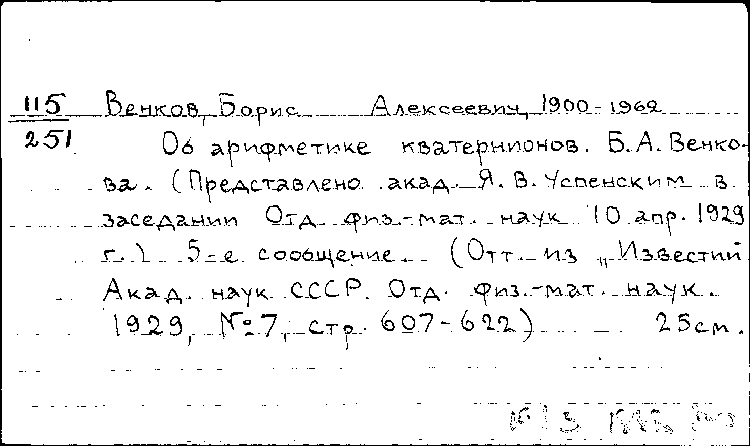 115 Венков, Борис Алексеевич, 1900-1962
251 Об арифметике кватернионов. Б.А. Венко-
ва. (Представлено акад. Я. В. Успенским в
заседании Отд. физ.-мат. наук 10 апр. 1929
г.) 5-е сообщение. (Отт. из „Известий
Акад. наук СССР. Отд. физ.-мат. наук.
1929, №7, стр. 607-622) 25см.